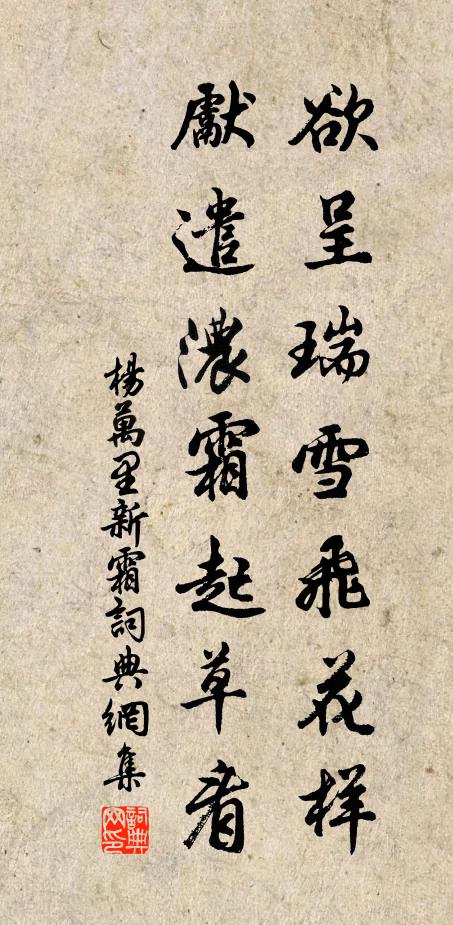 欲呈瑞雪飛花樣
獻遣濃霜起草看
楊萬里新霜詞典網集
詞典网印